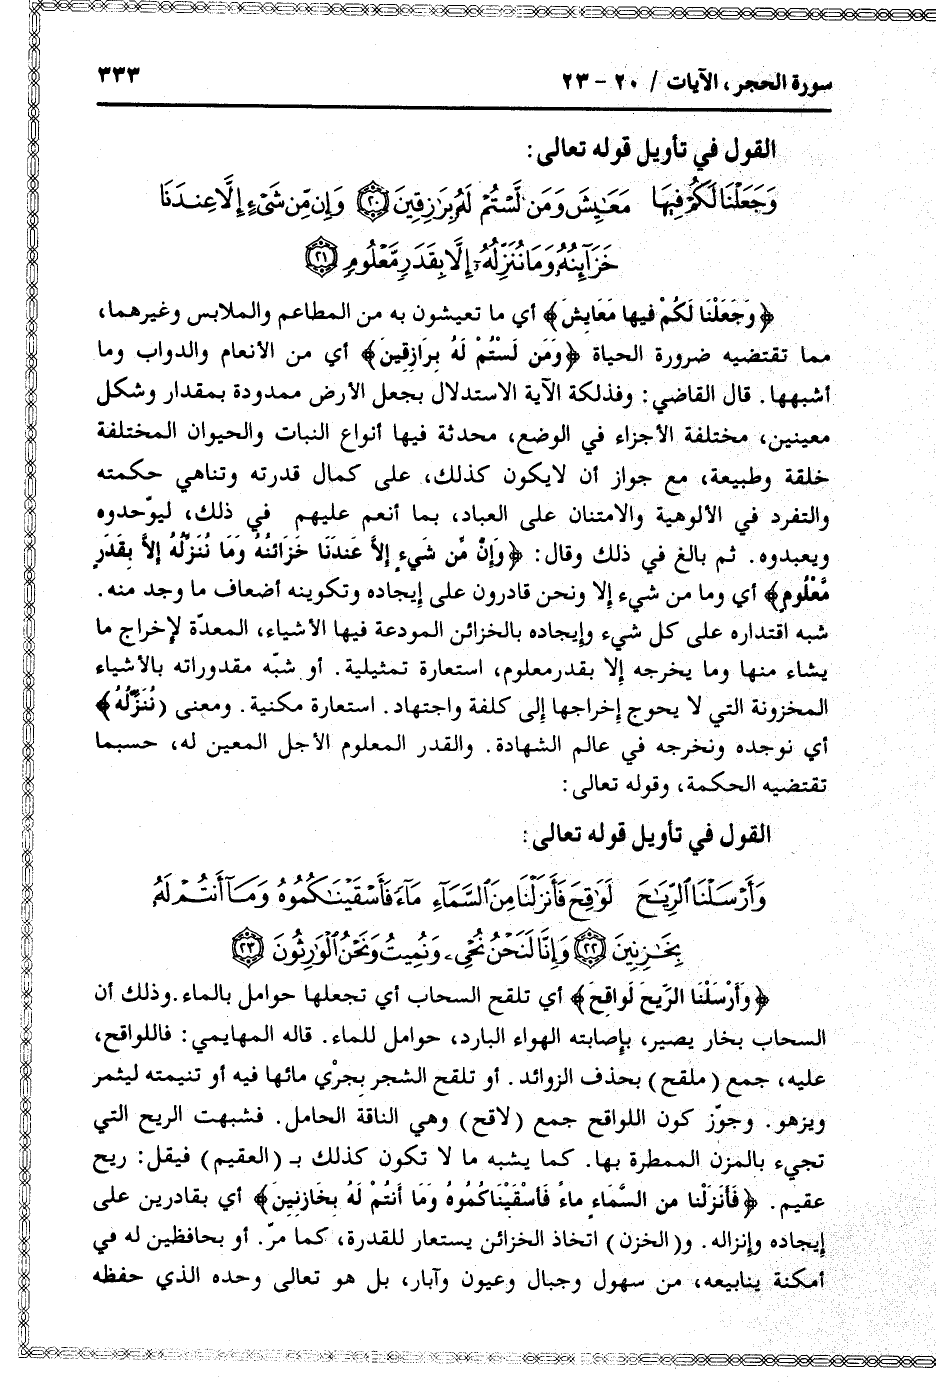 سورة الحجر، الآيات / ٢٠ - ٢٣ ٣٣٣
القول في تأويل قوله تعالى:
وَجَعَلْنَا لَكُمْ فِيهَا مَعَايِشَ وَمَن لَّسْتُمْ لَهُۥ بِرَازِقِينَ ٢٠ وَإِن مِّن شَىْءٍ إِلَّا عِندَنَا
خَزَآئِنُهُۥ وَمَا نُنَزِّلُهُۥٓ إِلَّا بِقَدَرٍ مَّعْلُومٍ ٢١
﴿وَجَعَلْنَا لَكُمْ فيها مَعَايشَ﴾ أي ما تعيشون به من المطاعم والملابس وغيرهما،
مما تقتضيه ضرورة الحياة ﴿وَمَن لَسْتُمْ لَهُ بِرَازِقِينَ﴾ أي من الأنعام والدواب وما
أشبهها. قال القاضي: وفذلكة الآية الاستدلال بجعل الأرض ممدودة بمقدار وشكل
معينين، مختلفة الأجزاء في الوضع، محدثة فيها أنواع النبات والحيوان المختلفة
خلقة وطبيعة، مع جواز أن لايكون كذلك، على كمال قدرته وتناهي حكمته
والتفرد في الألوهية والامتنان على العباد، بما أنعم عليهم في ذلك، ليوّحدوه
ويعبدوه. ثم بالغ في ذلك وقال: ﴿وَإنْ مِّن شَيءٍ إلاَّ عِندَنَا خَزَائنُهُ وَمَا نُنَزِّلُهُ إلاَّ بِقَدَرٍ
مَّعْلُومٍ﴾ أي وما من شيء إلا ونحن قادرون على إيجاده وتكوينه أضعاف ما وجد منه.
شبه اقتداره على كل شيء وإيجاده بالخزائن المودعة فيها الأشياء، المعدّة لإخراج ما
يشاء منها وما يخرجه إلا بقدرمعلوم، استعارة تمثيلية. أو شبّه مقدوراته بالأشياء
المخزونة التي لا يحوج إخراجها إلى كلفة واجتهاد. استعارة مكنية. ومعنى (نُنَزِّلُهُ﴾
أي نوجده ونخرجه في عالم الشهادة. والقدر المعلوم الأجل المعين له، حسبما
تقتضيه الحكمة، وقوله تعالى:
القول في تأويل قوله تعالى:
وَأَرْسَلْنَا ٱلرِّيَـٰحَ لَوَٰقِحَ فَأَنزَلْنَا مِنَ ٱلسَّمَآءِ مَآءً فَأَسْقَيْنَـٰكُمُوهُ وَمَآ أَنتُمْ لَهُۥ
بِخَـٰزِنِينَ ٢٢ وَإِنَّا لَنَحْنُ نُحْىِۦ وَنُمِيتُ وَنَحْنُ ٱلْوَٰرِثُونَ ٢٣
﴿وَأَرْسَلْنَا الرِّيحَ لَواقِحَ﴾ أي تلقح السحاب أي تجعلها حوامل بالماء.وذلك أن
السحاب بخار يصير، بإصابته الهواء البارد، حوامل للماء. قاله المهايمي: فاللواقح،
عليه، جمع (ملقح) بحذف الزوائد. أو تلقح الشجر بجرْي مائها فيه أو تنيمته ليثمر
ويزهو. وجوّز كون اللواقح جمع (لاقح) وهي الناقة الحامل. فشبهت الريح التي
تجيء بالمزن الممطرة بها. كما يشبه ما لا تكون كذلك بـ (العقيم) فيقل: ريح
عقيم. ﴿فَأَنَزَلْنا من السَّمَاء ماءً فَأسْقَيْنَاكُمُوهُ وَمَا أَنتُمْ لَهُ بِخَازنِينَ﴾ أي بقادرين على
إيجاده وإنزاله. و(الخزن) اتخاذ الخزائن يستعار للقدرة، كما مرّ. أو بحافظين له في
أمكنة ينابيعه، من سهول وجبال وعيون وآبار، بل هو تعالى وحده الذي حفظه